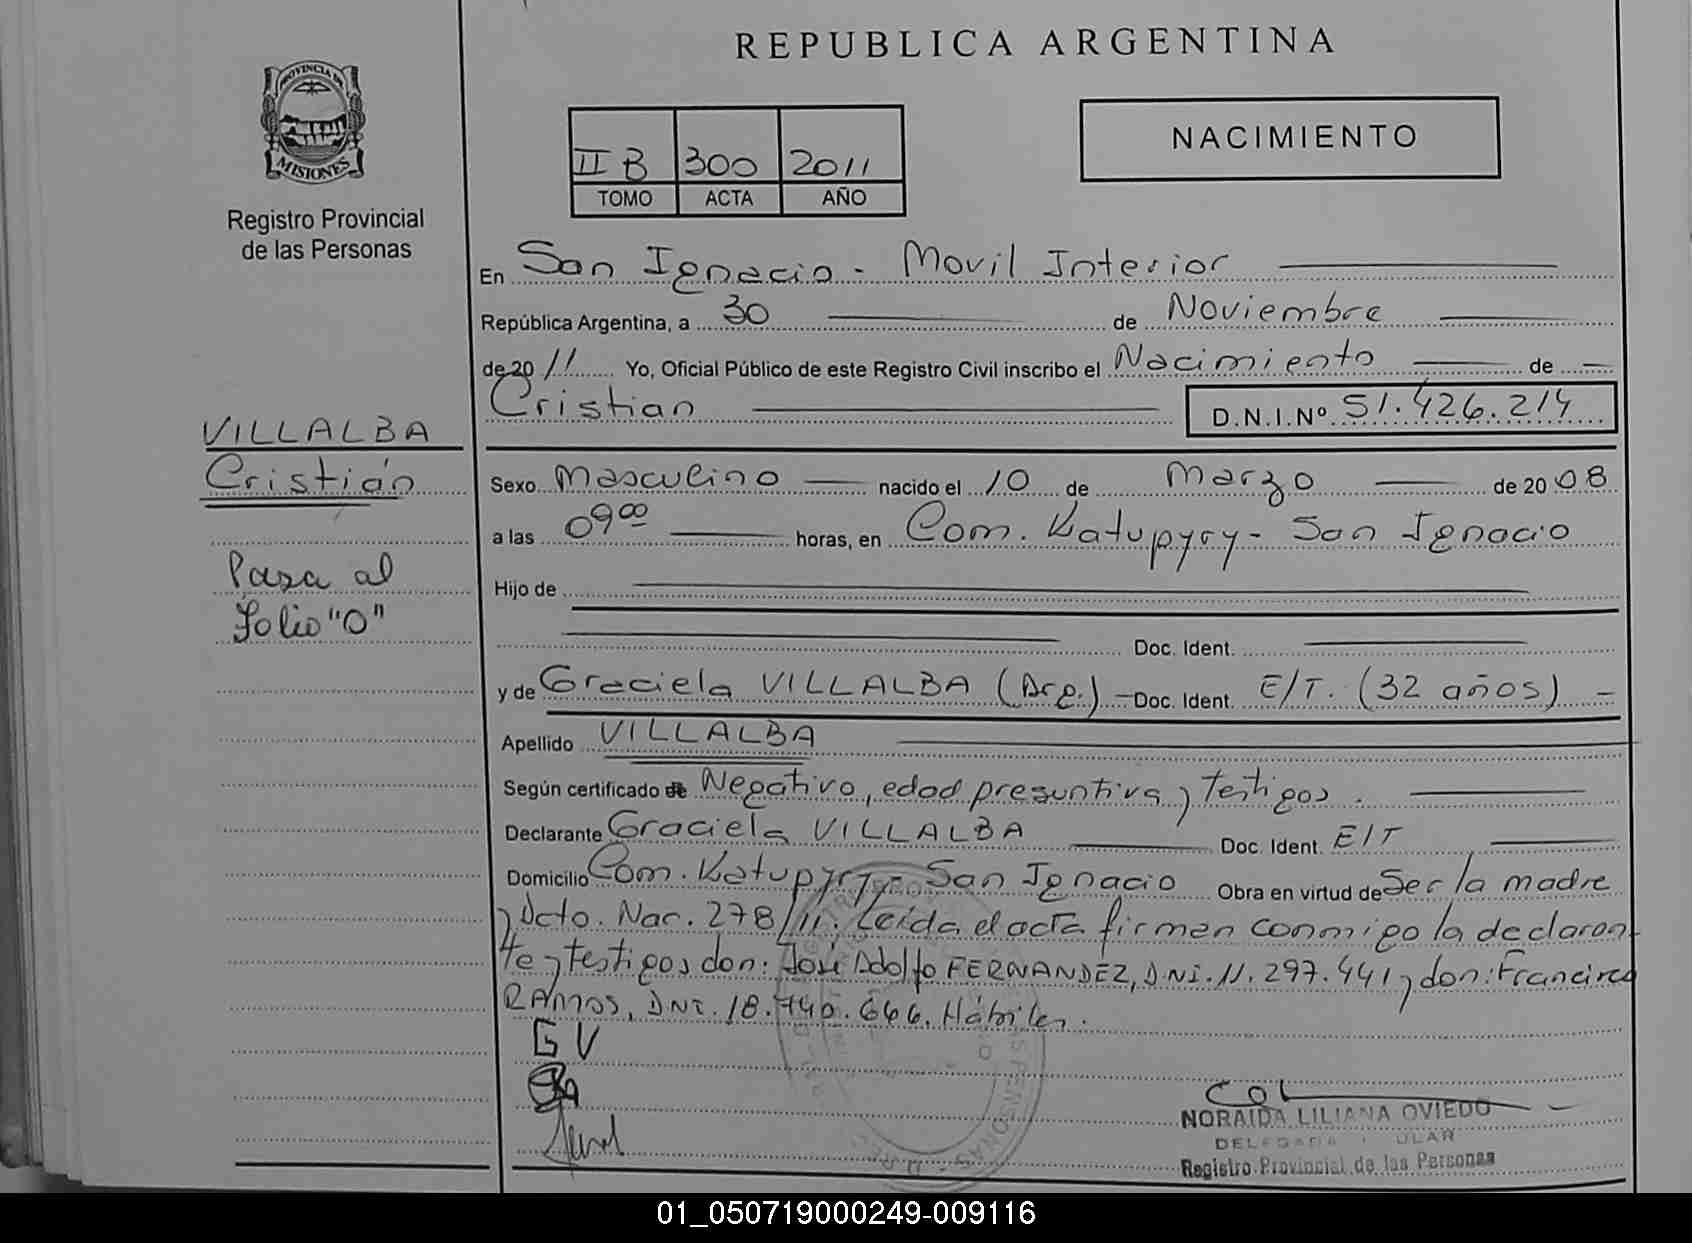 REPUBLICA ARGENTINA
PROVINCIA DE
MISIONES
Registro Provincial
de las Personas
II B 300 2011
TOMO ACTA AÑO
NACIMIENTO
En San Ignacio - Movil Interior
República Argentina, a 30 de Noviembre
de 20 11 Yo, Oficial Público de este Registro Civil inscribo el Nacimiento de
Cristian D.N.I.Nº 51.426.214
VILLALBA
Cristián
Pasa al
Folio "O"
Sexo Masculino nacido el 10 de Marzo de 20 08
a las 09 00 horas, en Com. Katupyry - San Ignacio
Hijo de
Doc. Ident.
y de Graciela VILLALBA (Arg.) Doc. Ident. E/T. (32 años)
Apellido VILLALBA
Según certificado de Negativo, edad presuntiva y testigos.
Declarante Graciela VILLALBA Doc. Ident. E/T
Domicilio Com. Katupyry - San Ignacio Obra en virtud de Ser la madre
y Dcto. Nac. 278/11. Leída el acta firman conmigo la declaran
te y testigos don: José Adolfo FERNANDEZ, DNI. 11.297.441 y don: Francisco
RAMOS, DNI. 18.740.666. Hábiles.
G V
NORAIDA LILIANA OVIEDO
DELEGADA TITULAR
Registro Provincial de las Personas
01_050719000249-009116